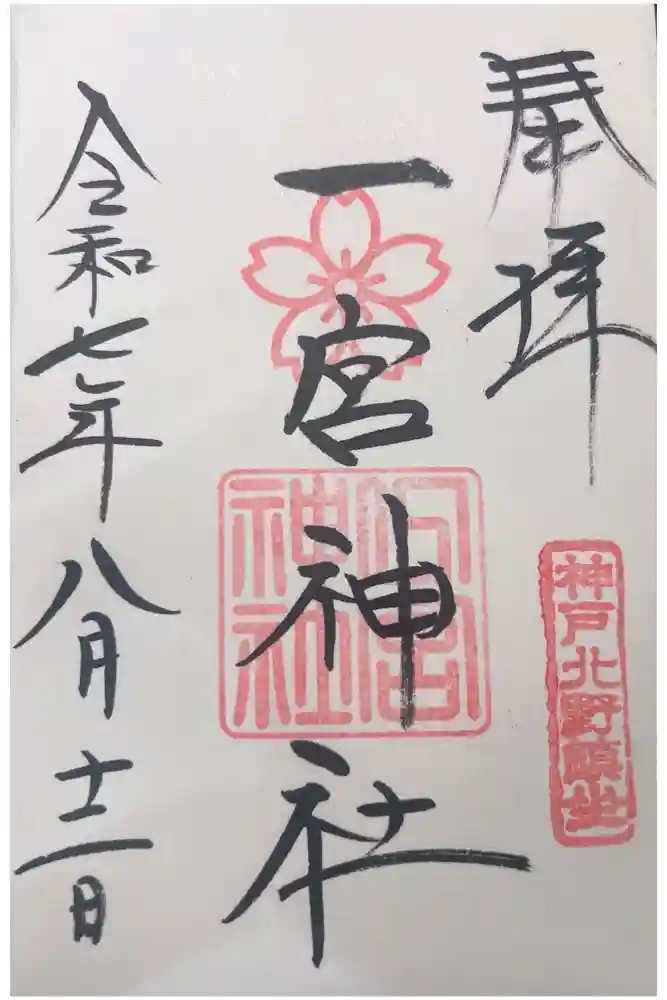 奉拝
神戸北野鎮坐
一宮神社
一宮神社
令和七年八月十二日